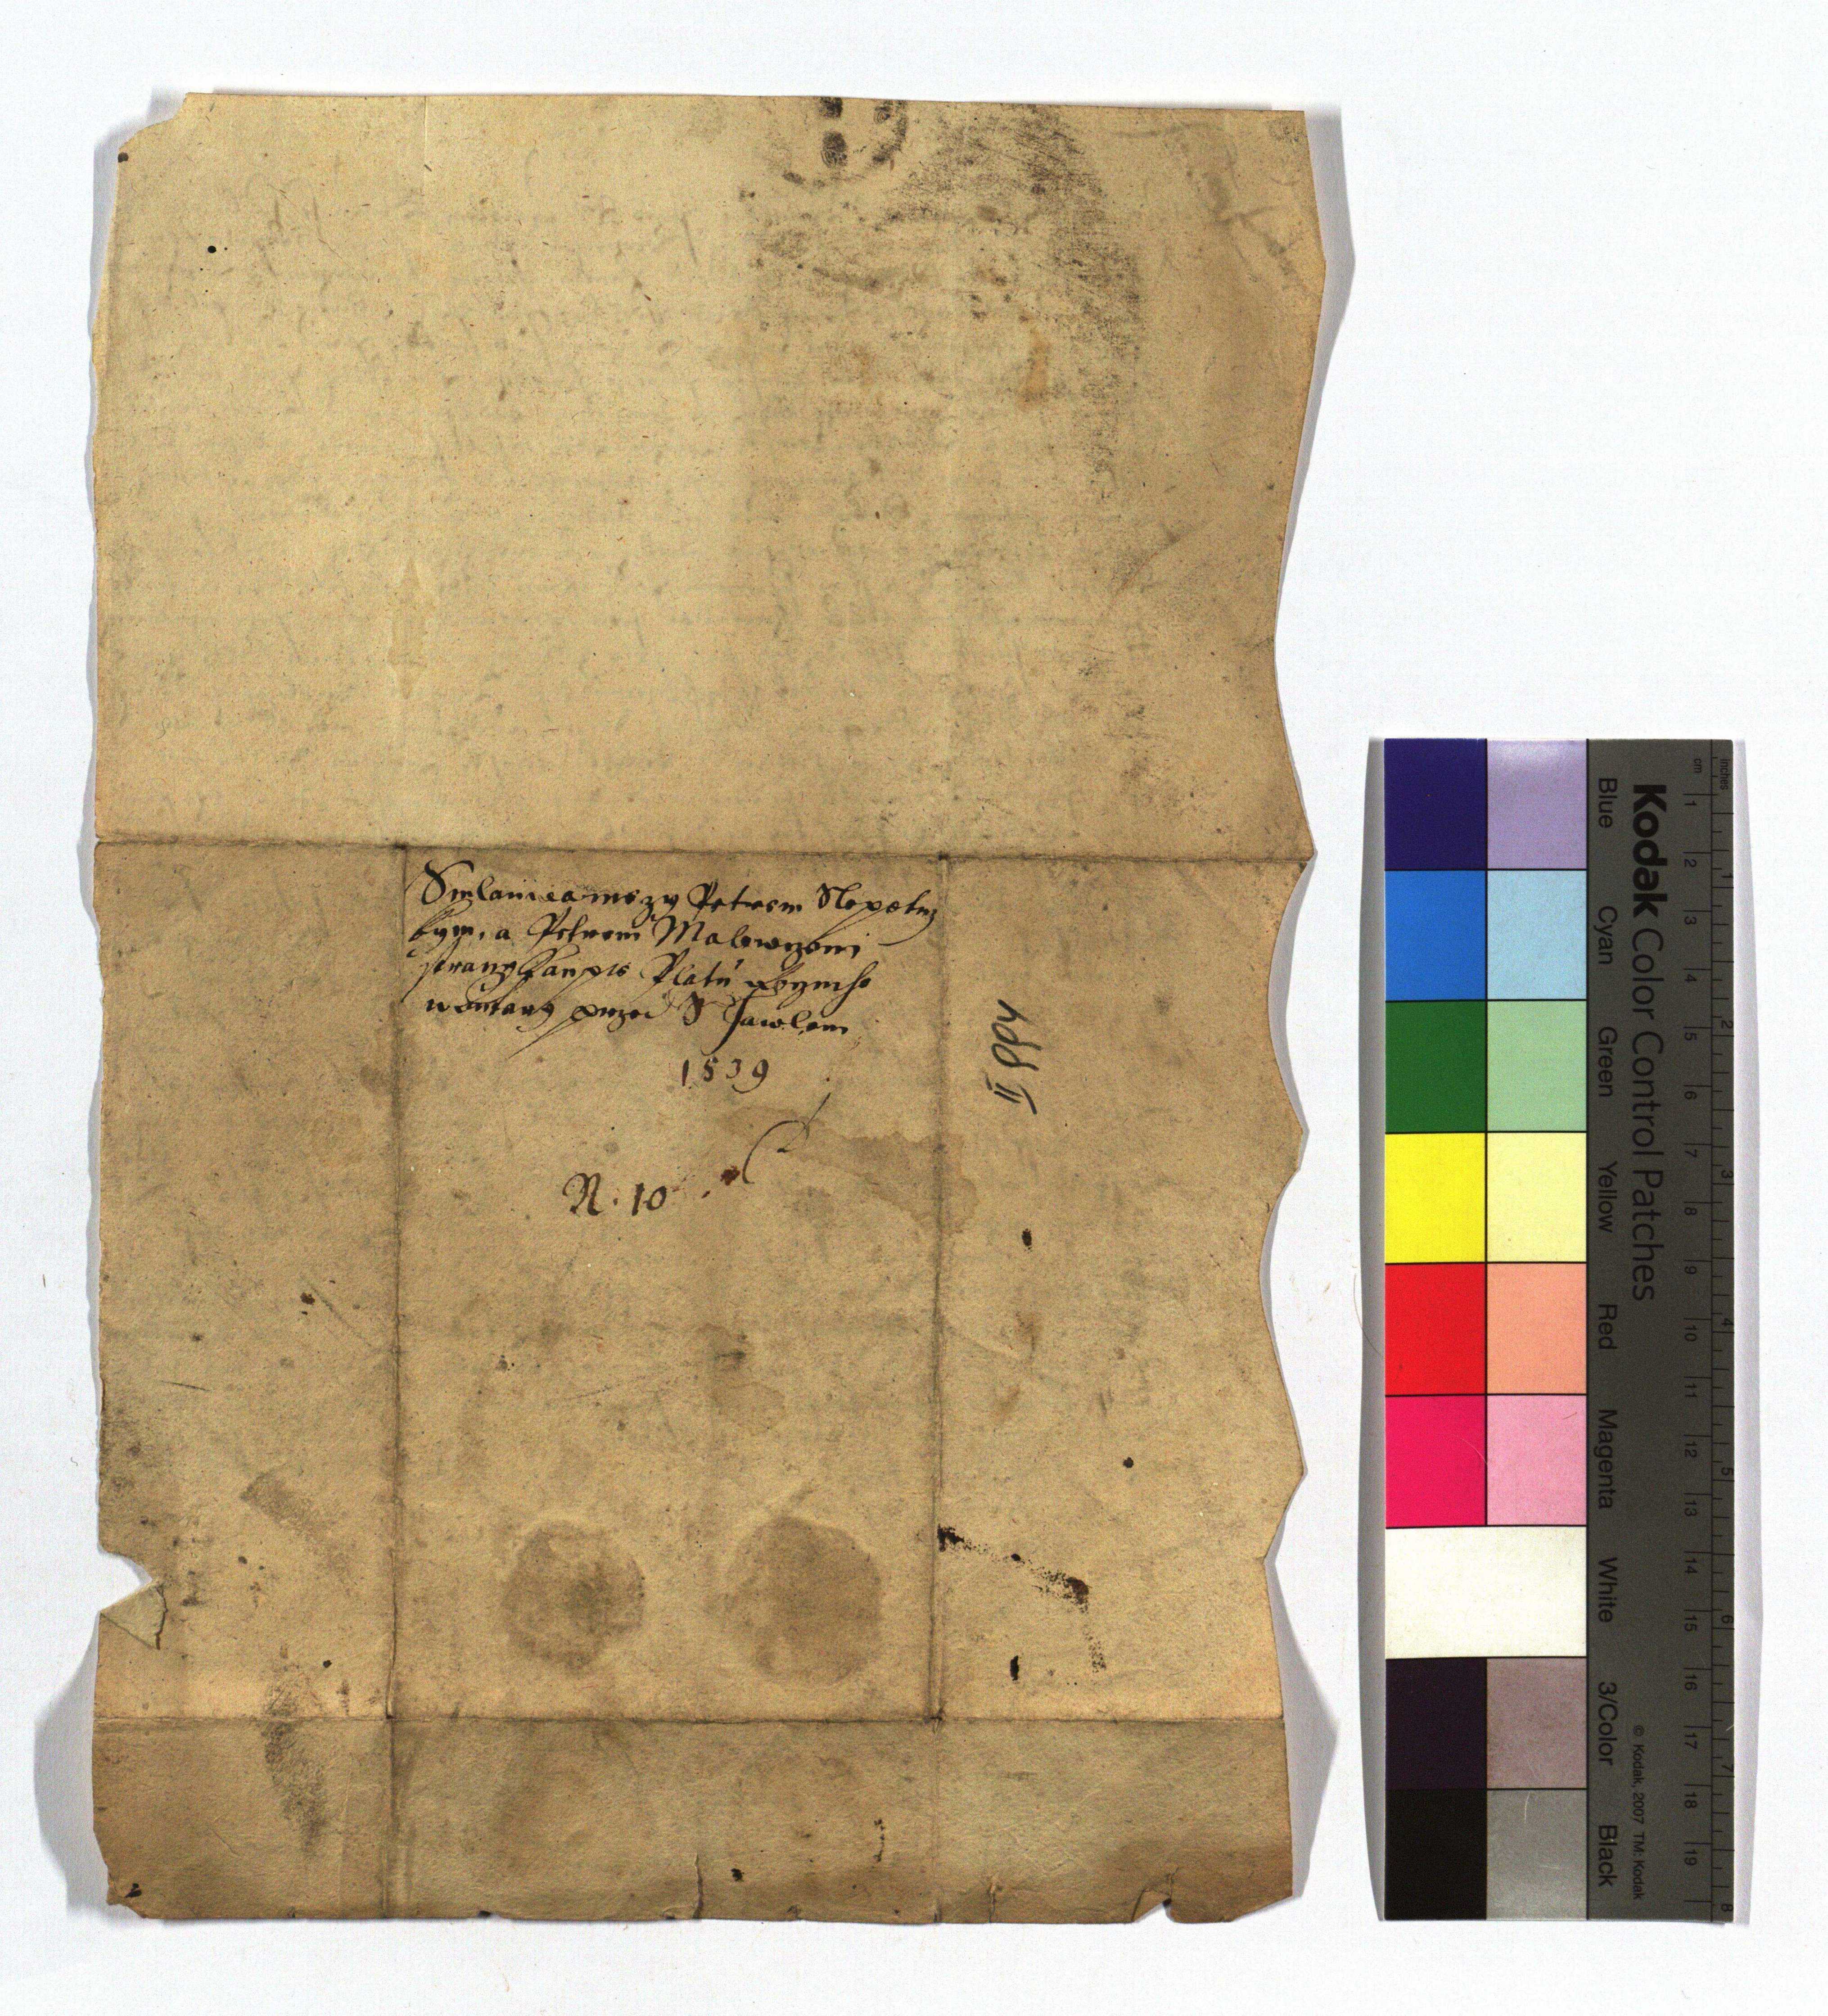 Smlauwa mezy Petrem Nepetz
kym, a Petrem Malowczem
strany
Platu
przed S Pawlem
1539
N. 10
II
Kodak Color Control Patches
Blue
Cyan
Green
Yellow
Red
Magenta
White
3/Color
Black
© Kodak, 2007 TM: Kodak
cm 1 2 3 4 5 6 7 8 9 10 11 12 13 14 15 16 17 18 19
inches 1 2 3 4 5 6 7 8